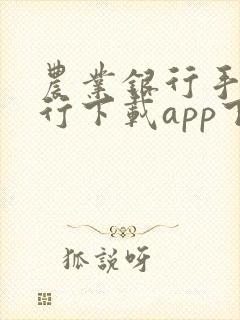 農業銀行手
行下載app下
狐說呀